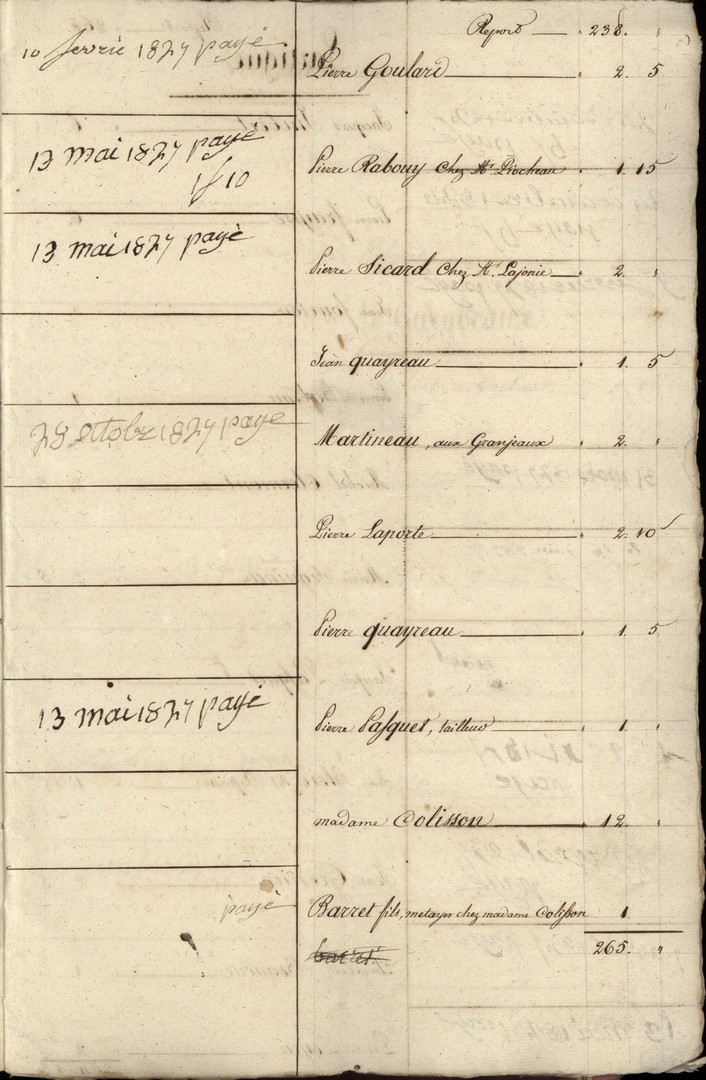 Report 238. "
10 fevrié 1827 payé
Pierre Goulard 2. 5
13 mai 1827 payé
1f 10
Pierre Rabouy chez Mr. Piocheau 1. 15
13 mai 1827 payé
Pierre Sicard chez Mr. Lajonie 2. "
Jean quayreau 1. 5
28 octobr 1827 payé
Martineau, aux Granjeaux 2. "
Pierre Laporte 2. 10
Pierre quayreau 1. 5
13 mai 1827 payé
Pierre Pasquet, tailleur 1. "
madame Colisson 12. "
payé
Barret fils, metayer chez madame Colisson 1.
265. "